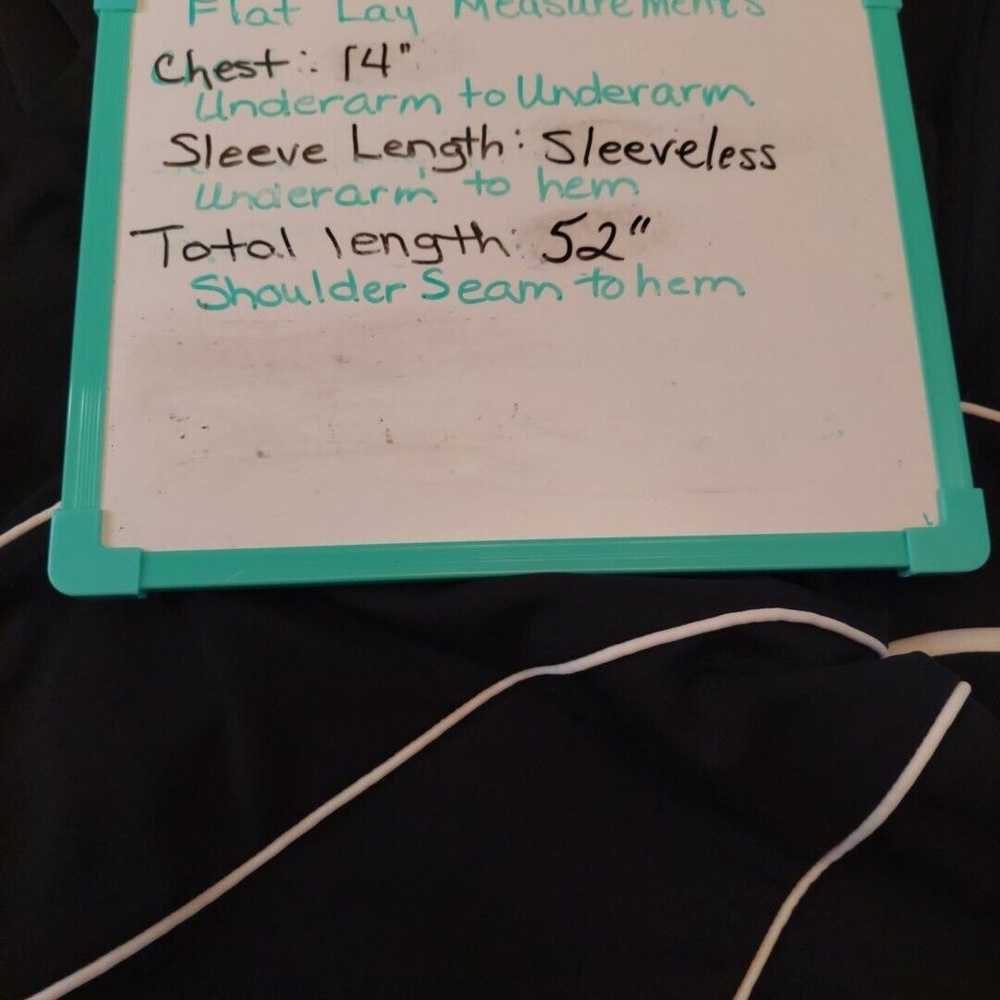 Flat Lay Measurements
Chest: 14"
Underarm to Underarm
Sleeve Length: Sleeveless
Underarm to hem
Total length: 52"
Shoulder Seam to hem